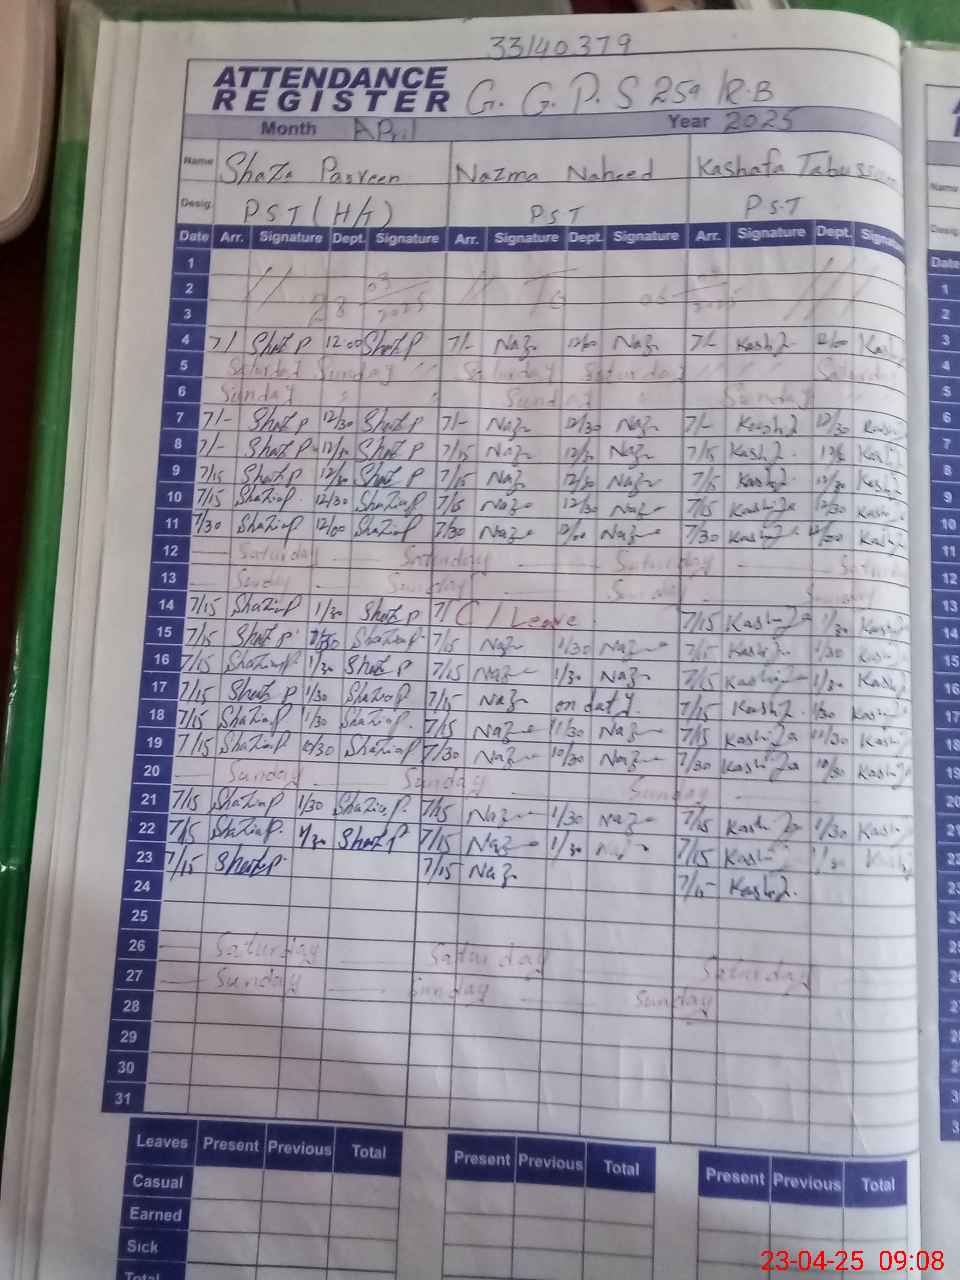 33140379
ATTENDANCE REGISTER G. G. P. S 259 /R.B
Month April Year 2025
Name Shaza Parveen Nazma Naheed Kashafa Tabussum
Desig. PST (H/T) PST P.S.T
Date Arr. Signature Dept. Signature Arr. Signature Dept. Signature Arr. Signature Dept. Signature
1
2 28 03 2025 To 06 2025
3
4 7/- Shaz P 12:00 Shaz P 7/- Naz 12/00 Naz 7/- Kash 12/00 Kash
5 Saturday Sunday Saturday Saturday Saturday
6 Sunday Sunday Sunday
7 7/- Shaz P 12/30 Shaz P 7/- Naz 12/30 Naz 7/- Kash 12/30 Kash
8 7/- Shaz P Shaz P 7/15 Naz 12/30 Naz 7/15 Kash Kash
9 7/15 Shaz P 12/30 Shaz P 7/15 Naz 12/30 Naz 7/15 Kash 12/30 Kash
10 7/15 ShaziaP. 12/30 ShaziaP 7/15 Naz 12/30 Naz 7/15 Kash 12/30 Kash
11 7/30 ShaziaP 12/00 ShaziaP 7/30 Naz 12/00 Naz 7/30 Kash 12/00 Kash
12 Saturday Saturday Saturday Saturday
13 Sunday Sunday Sunday Sunday
14 7/15 ShaziaP 1/30 Shaz P 7/ C / Leave. 7/15 Kash 1/30 Kash
15 7/15 Shaz P. 1/30 ShaziaP. 7/15 Naz 1/30 Naz 7/15 Kash 1/30 Kash
16 7/15 ShaziaP 1/30 Shaz P 7/15 Naz 1/30 Naz 7/15 Kash 1/30 Kash
17 7/15 Shaz P 1/30 ShaziaP 7/15 Naz on duty. 7/15 Kash 1/30 Kash
18 7/15 ShaziaP 1/30 ShaziaP. 7/15 Naz 11/30 Naz 7/15 Kash 11/30 Kash
19 7/15 ShaziaP 10/30 ShaziaP 7/30 Naz 10/30 Naz 7/30 Kash 10/30 Kash
20 Sunday Sunday Sunday
21 7/15 ShaziaP 1/30 ShaziaP. 7/15 Naz 1/30 Naz 7/15 Kash 1/30 Kash
22 7/15 ShaziaP. 1/30 Shaz P 7/15 Naz 1/30 Naz 7/15 Kash 1/30 Kash
23 7/15 Shaz P. 7/15 Naz 7/15 Kash
24
25
26 Saturday Saturday Saturday
27 Sunday Sunday Sunday
28
29
30
31
Leaves Present Previous Total Present Previous Total Present Previous Total
Casual
Earned
Sick
Total
23-04-25 09:08